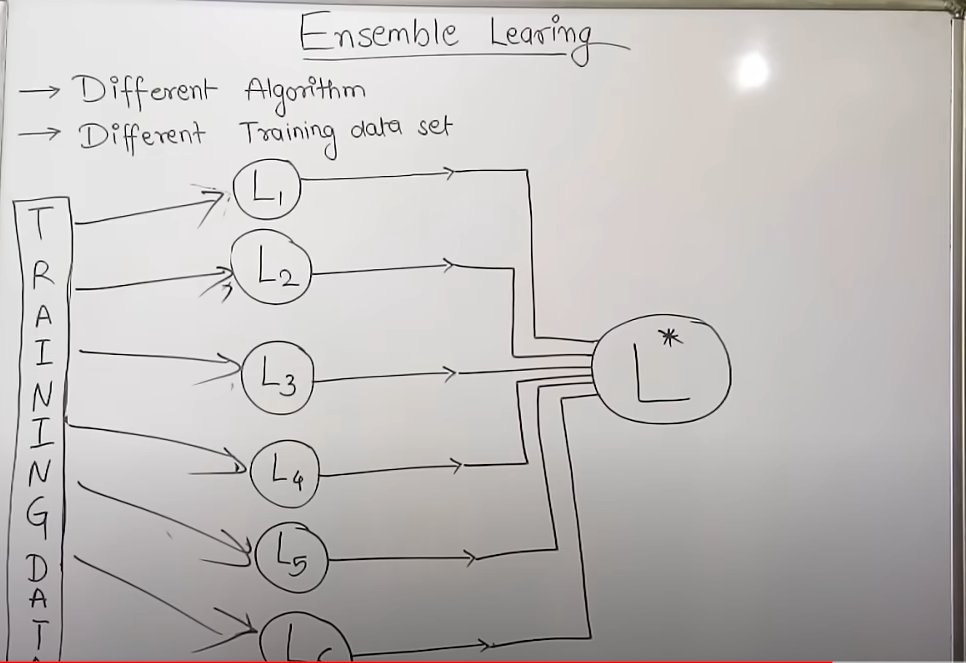 Ensemble Learing
→ Different Algorithm
→ Different Training data set
TRAINING DAT
L1
L2
L3
L4
L5
L
L*